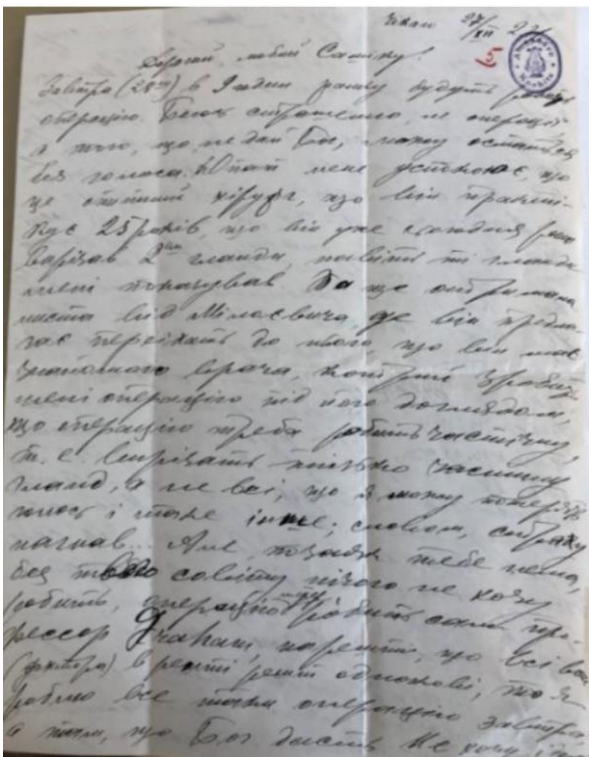 27/XII 22
5
Дорогий, любий Саліку!
Завтра (28го) в 9 годин ранку будуть
операцію. Боюсь страшенно, не операції
а того, що, не дай Бог, можу остатись
без голоса. мене успокоює, що
це хірург, що він практи-
кує 25 років, що він уже сьогодня
вирізав 2 гланди, навіть ті гланди
мені показував. Та ще отримала
листа від Мілосвича, де він предла-
гає переїхать до нього що він має
знакомого врача, котрий зробить
мені операцію під його доглядом,
що операцію треба робить частичну,
т. е. вирізать тілько частину
гланд, а не всі, що я можу
голос і таке інше; словом, страху
нагнав... Але, позаяк тебе нема,
без твого совіту нічого не хочу
робить, операцію робить сам про-
фессор Graham, нарешті, що всі вони
(доктора) в решті решт однакові, то я
роблю все таки операцію завтра,
а там, що Бог дасть. Не хочу